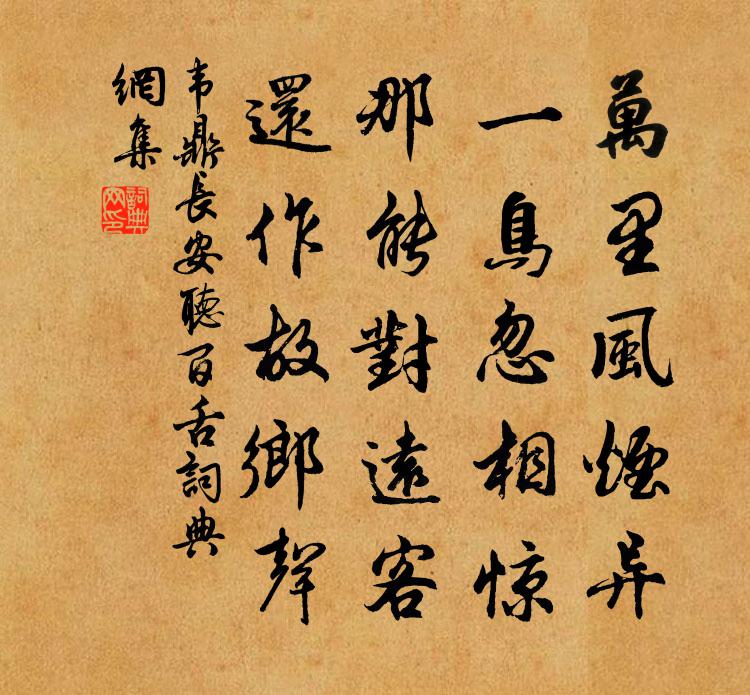 萬里風煙异
一鳥忽相惊
那能對遠客
還作故鄉聲
韦鼎長安聽百舌詞典
網集
詞典
网印